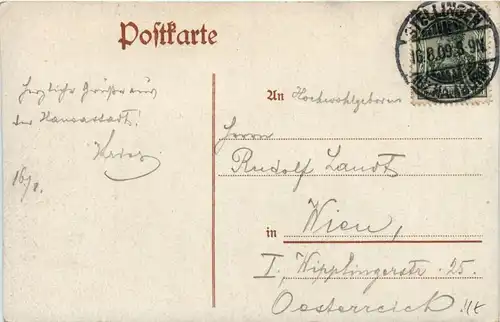 Postkarte
STELLINGEN
16.8.09.8-9N.
(BZ. HAMBURG)
Herzliche Grüße aus
der Hansastadt!
16/8.
An Hochwohlgeboren
Herrn
Rudolf Landt
in Wien,
I., Wipplingerstr. 25.
Oesterreich